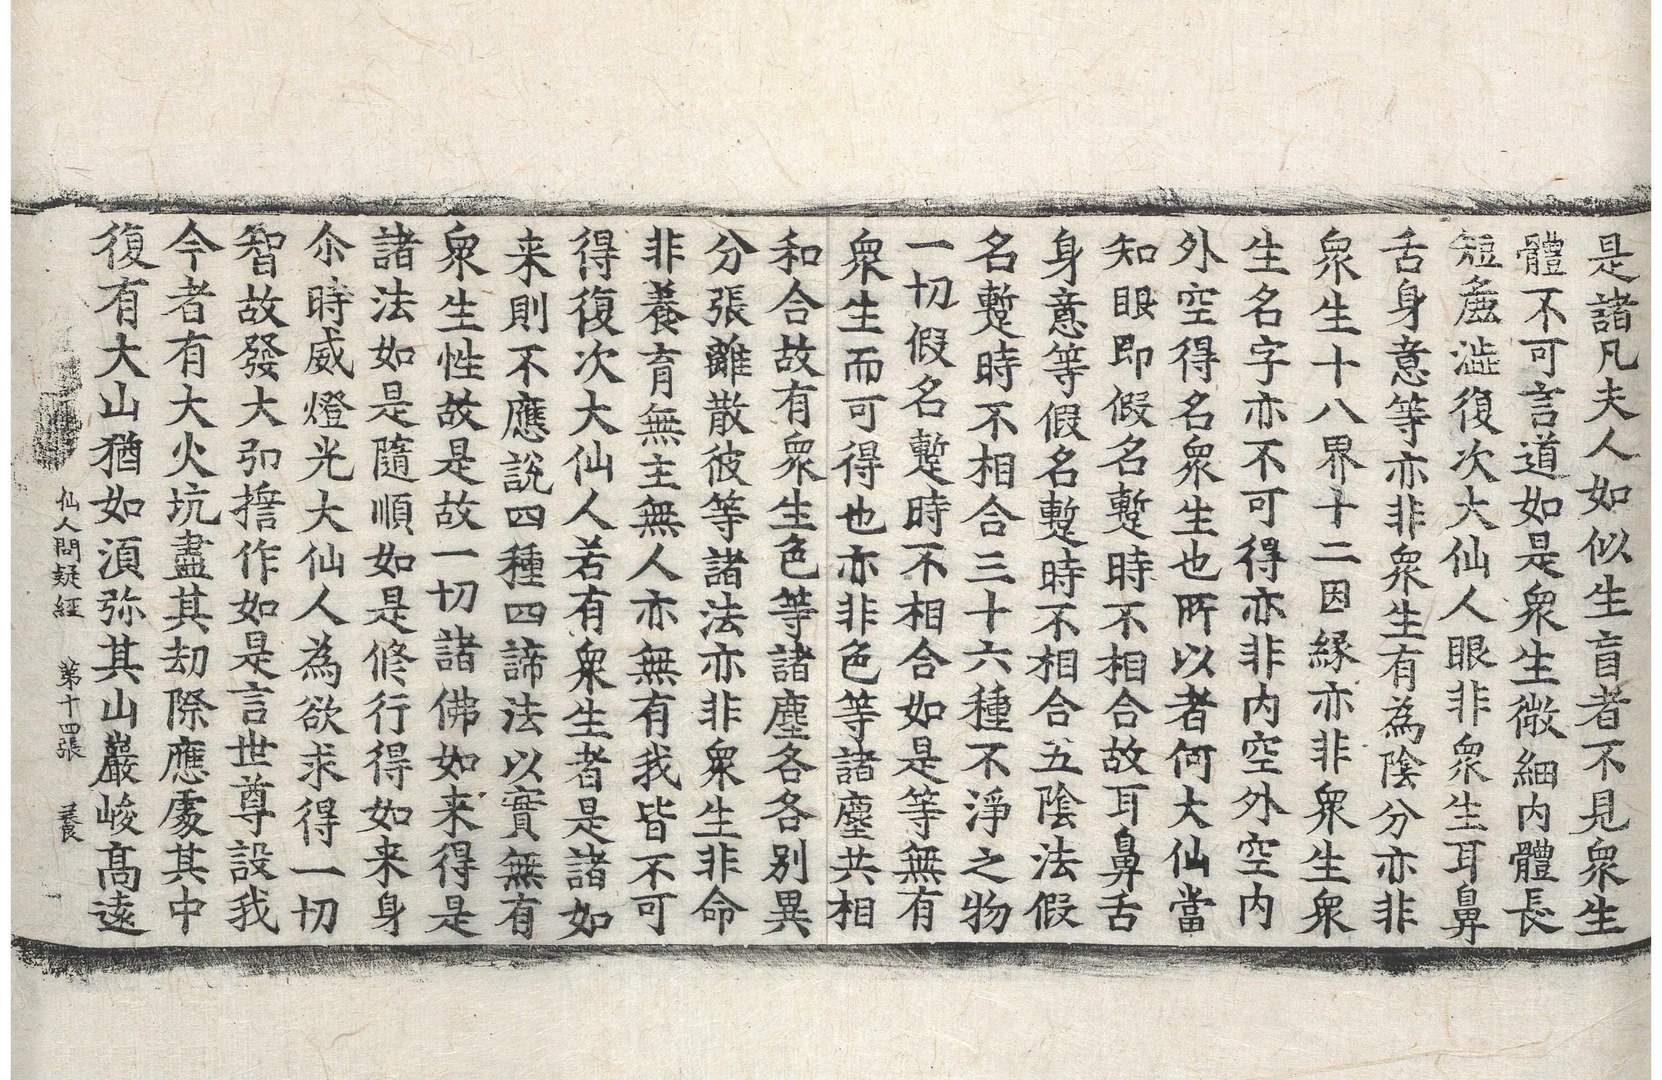 是諸凡夫人如似生盲者不見衆生
體不可言道如是衆生微細內體長
短麁澁復次大仙人眼非衆生耳鼻
舌身意等亦非衆生有為陰分亦非
衆生十八界十二因緣亦非衆生衆
生名字亦不可得亦非內空外空內
外空得名衆生也所以者何大仙當
知眼即假名蹔時不相合故耳鼻舌
身意等假名蹔時不相合五陰法假
名蹔時不相合三十六種不淨之物
一切假名蹔時不相合如是等無有
衆生而可得也亦非色等諸塵共相
和合故有衆生色等諸塵各各別異
分張離散彼等諸法亦非衆生非命
非養育無主無人亦無有我皆不可
得復次大仙人若有衆生者是諸如
来則不應說四種四諦法以實無有
衆生性故是故一切諸佛如来得是
諸法如是隨順如是修行得如来身
尒時威燈光大仙人為欲求得一切
智故發大弘擔作如是言世尊設我
今者有大火坑盡其劫際應處其中
復有大山猶如湏弥其山巖峻髙遠
仙人問疑経 第十四張